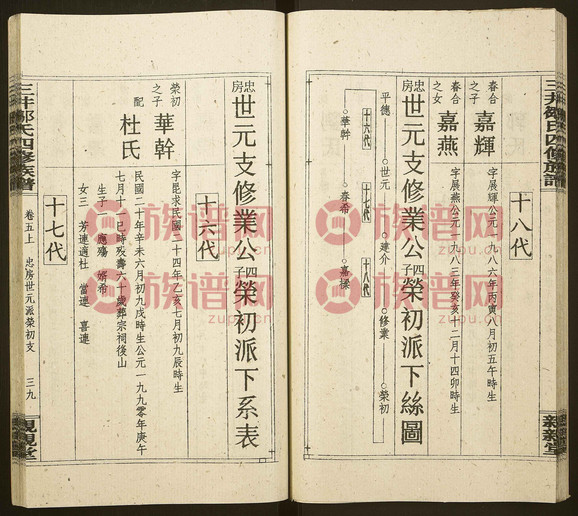 三井鄒氏四修族譜
親親堂
十八代
春合之子
嘉輝
字展輝公元一九八六年丙寅八月初五午時生
春合之女
嘉燕
字展燕公元一九八三年癸亥十二月十四卯時生
忠房世元支修業公四子榮初派下絲圖
平德
世元
建介
修業
榮初
十六代
十七代
十八代
華幹
春希
嘉樑
忠房世元支修業公四子榮初派下系表
十六代
榮初之子
華幹
字昆求民國二十四年乙亥七月初九辰時生
配
杜氏
民國二十年辛未六月初九戌時生公元一九九零年庚午
七月十一巳時歿壽六十歲葬宗祠後山
生子一
應殤
女三
芳連適杜
當連
喜連
十七代
三井鄒氏四修族譜
卷五上
忠房世元派榮初支
三九
親親堂
族谱网
zupu.cn
族谱网
zupu.cn
族谱网
zupu.cn
族谱网
zupu.cn